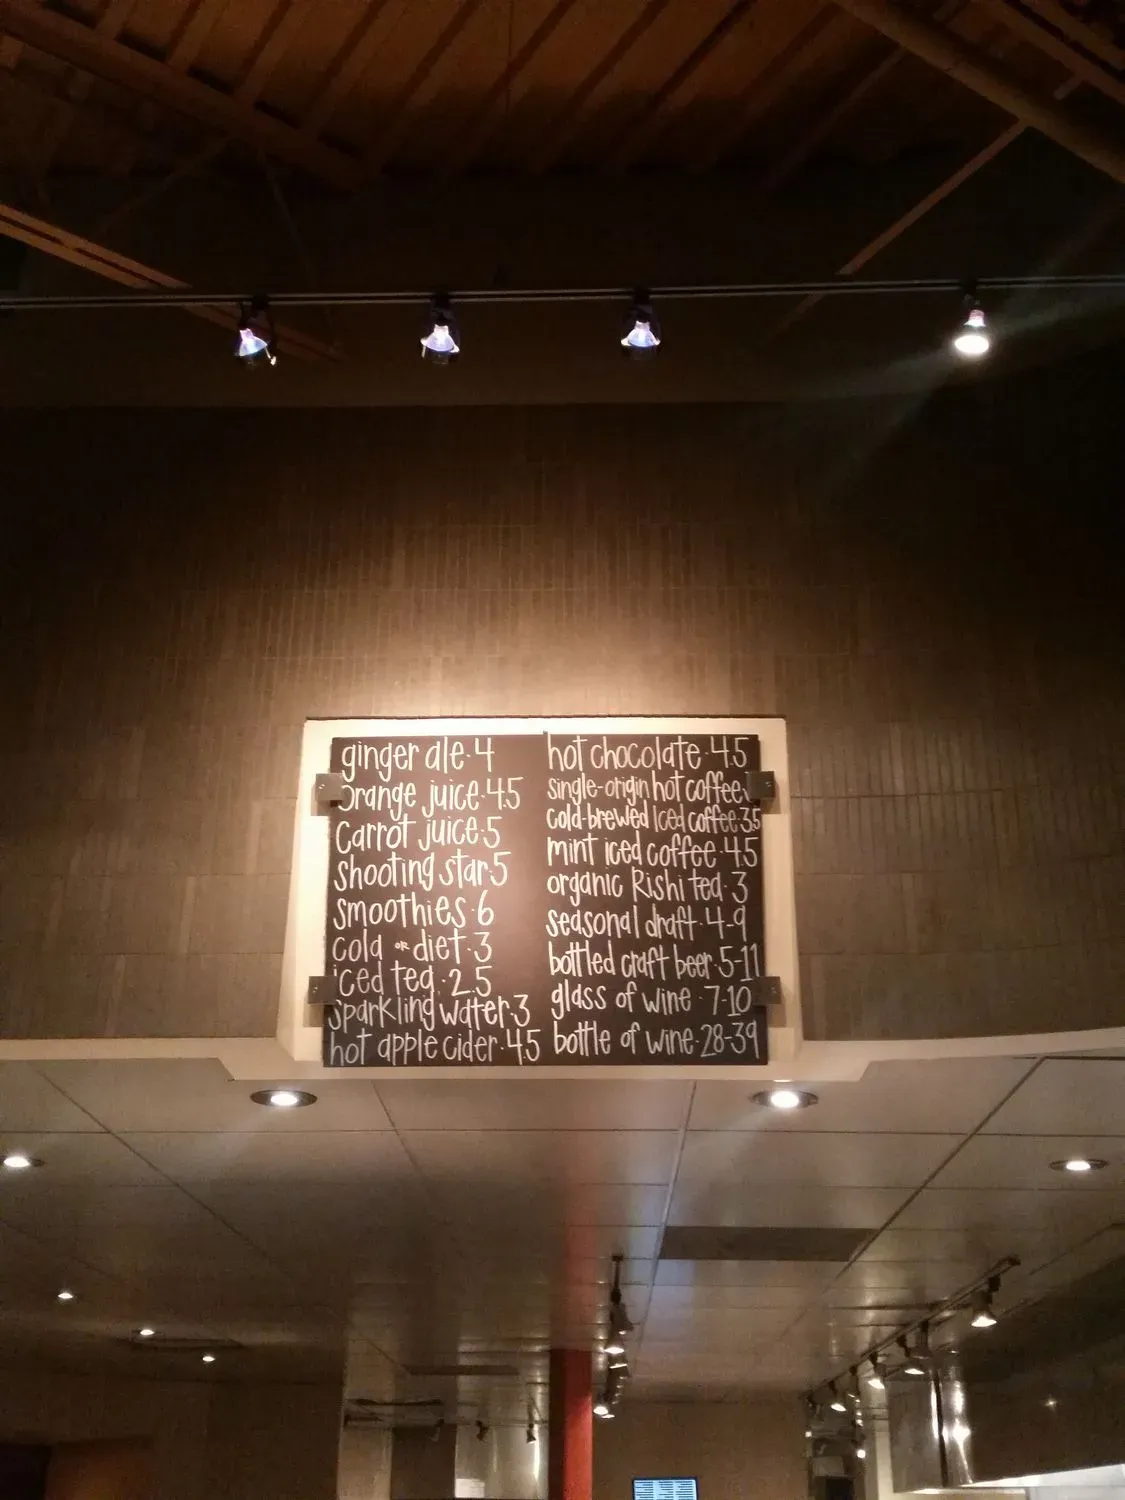 ginger ale·4
orange juice·4.5
carrot juice·5
shooting star·5
smoothies·6
cola or diet·3
iced tea·2.5
sparkling water·3
hot apple cider·4.5
hot chocolate·4.5
single-origin hot coffee
cold-brewed Iced coffee·3.5
mint iced coffee·4.5
organic Rishi tea·3
seasonal draft·4-9
bottled craft beer·5-11
glass of wine·7-10
bottle of wine·28-39